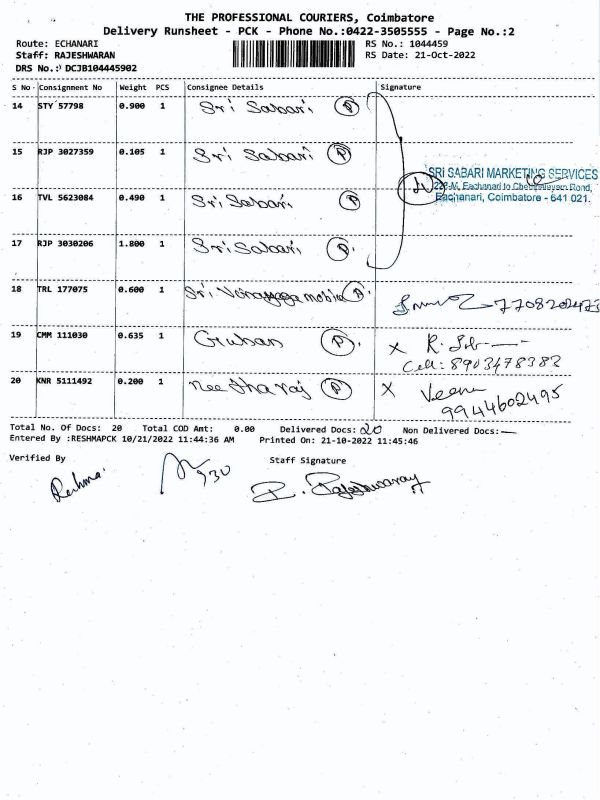 THE PROFESSIONAL COURIERS, Coimbatore
Delivery Runsheet - PCK - Phone No.:0422-3505555 - Page No.:2
Route: ECHANARI RS No.: 1044459
Staff: RAJESHWARAN RS Date: 21-Oct-2022
DRS No.: DCJB104445902
S No Consignment No Weight PCS Consignee Details Signature
14 STY 57798 0.900 1 Sri Sabari P
15 RJP 3027359 0.105 1 Sri Sabari P
SRI SABARI MARKETING SERVICES
Eachanari, Coimbatore - 641 021.
16 TVL 5623084 0.490 1 Sri Sabari P
17 RJP 3030206 1.800 1 Sri Sabari P
18 TRL 177075 0.600 1 Sri Vinayaga mobile P 7708202473
19 CMM 111030 0.635 1 Guhan P X R.
Cell: 8903478382
20 KNR 5111492 0.200 1 Neetharaj P X Veena
9944602495
Total No. Of Docs: 20 Total COD Amt: 0.00 Delivered Docs: 20 Non Delivered Docs:—
Entered By :RESHMAPCK 10/21/2022 11:44:36 AM Printed On: 21-10-2022 11:45:46
Verified By Staff Signature
Reshma 930 R. Rajeshwaran